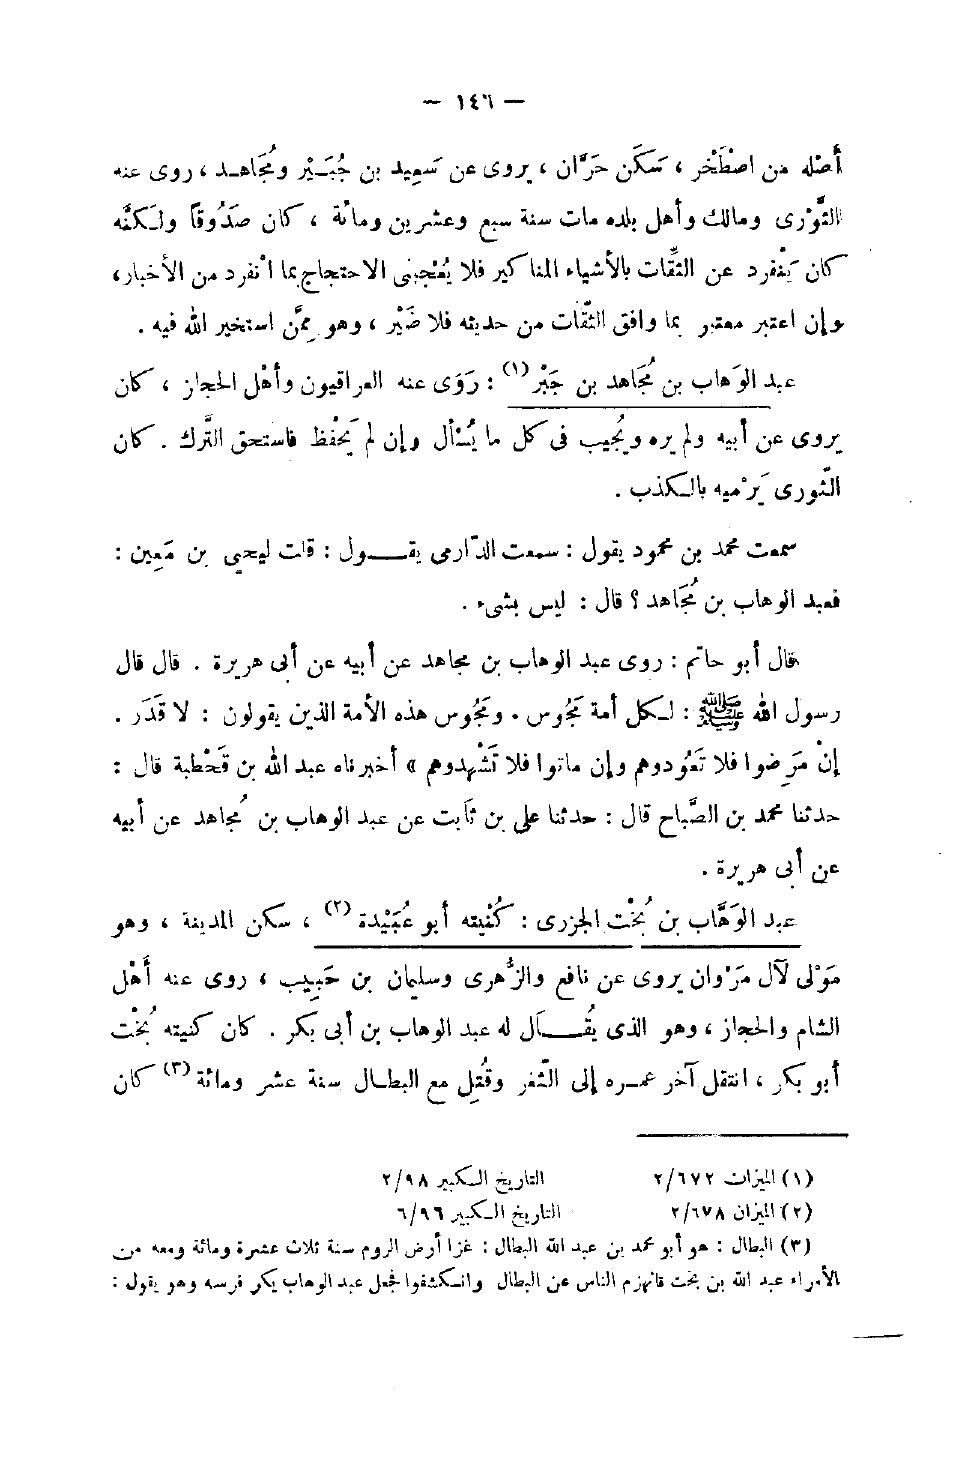 — ١٤٦ —
أَصْله من اصْطَخْر ، سَكَن حَرَّان ، يروى عن سَعِيد بن جُبَيْر ومُجَاهد ، روى عنه
الثَّوْرى ومالك وأهل بلده مات سنة سبع وعشرين ومائة ، كان صَدُوقاً ولكنَّه
كان يَنْفرد عن الثِّقات بالأشياء المناكير فلا يُعْجبنى الاحتجاج بما انْفرد من الأخبار ،
وإن اعتبر معتبر بما وافق الثِّقات من حديثه فلا ضَيْر ، وهو مِمَّن استخير الله فيه .
عبد الوَهاب بن مُجَاهد بن جَبْر (١) : رَوَى عنه العراقيون وأَهْل الحجاز ، كان
يروى عن أبيه ولم يره ويُجيب فى كل ما يُسْأل وإن لم يَحْفظ فاستحق التَّرك . كان
الثَّورى يَرْميه بالكذب .
سمعت محمد بن محمود يقول : سمعت الدَّارمى يقـــول : قلت ليحيى بن مَعِين :
فعبد الوهاب بن مُجَاهد ؟ قال : ليس بشىء .
قال أبو حاتم : روى عبد الوهاب بن مجاهد عن أبيه عن أبى هريرة . قال قال
رسول الله ﷺ : لكل أمة مَجُوس . ومَجُوس هذه الأمة الذين يقولون : لا قَدَر .
إنْ مَرِضوا فلا تَعُودوهم وإن ماتوا فلا تَشْهدوهم » أخبرناه عبد الله بن قَحْطبة قال :
حدثنا محمد بن الصَّباح قال : حدثنا على بن ثابت عن عبد الوهاب بن مُجاهد عن أبيه
عن أبى هريرة .
عبد الوَهَّاب بن بُخْت الجزرى : كُنْيته أبو عُبَيْدة (٢) ، سكن المدينة ، وهو
مَوْلى لآل مَرْوان يروى عن نافع والزُّهرى وسليمان بن حَبِيب ، روى عنه أَهْل
الشام والحجاز ، وهو الذى يُقــال له عبد الوهاب بن أبى بكر . كان كنيته بُخْت
أبو بكر ، انتقل آخر عمره إلى الثَّغر وقُتِل مع البطال سنة عشر ومائة (٣) كان
(١) الميزان ٢/٦٧٢ التاريخ الكبير ٢/٩٨
(٢) الميزان ٢/٦٧٨ التاريخ الكبير ٦/٩٦
(٣) البطال : هو أبو محمد بن عبد الله البطال : غزا أرض الروم سنة ثلاث عشرة ومائة ومعه من
الأمراء عبد الله بن بخت فانهزم الناس عن البطال وانكشفوا فجعل عبد الوهاب يكر فرسه وهو يقول :